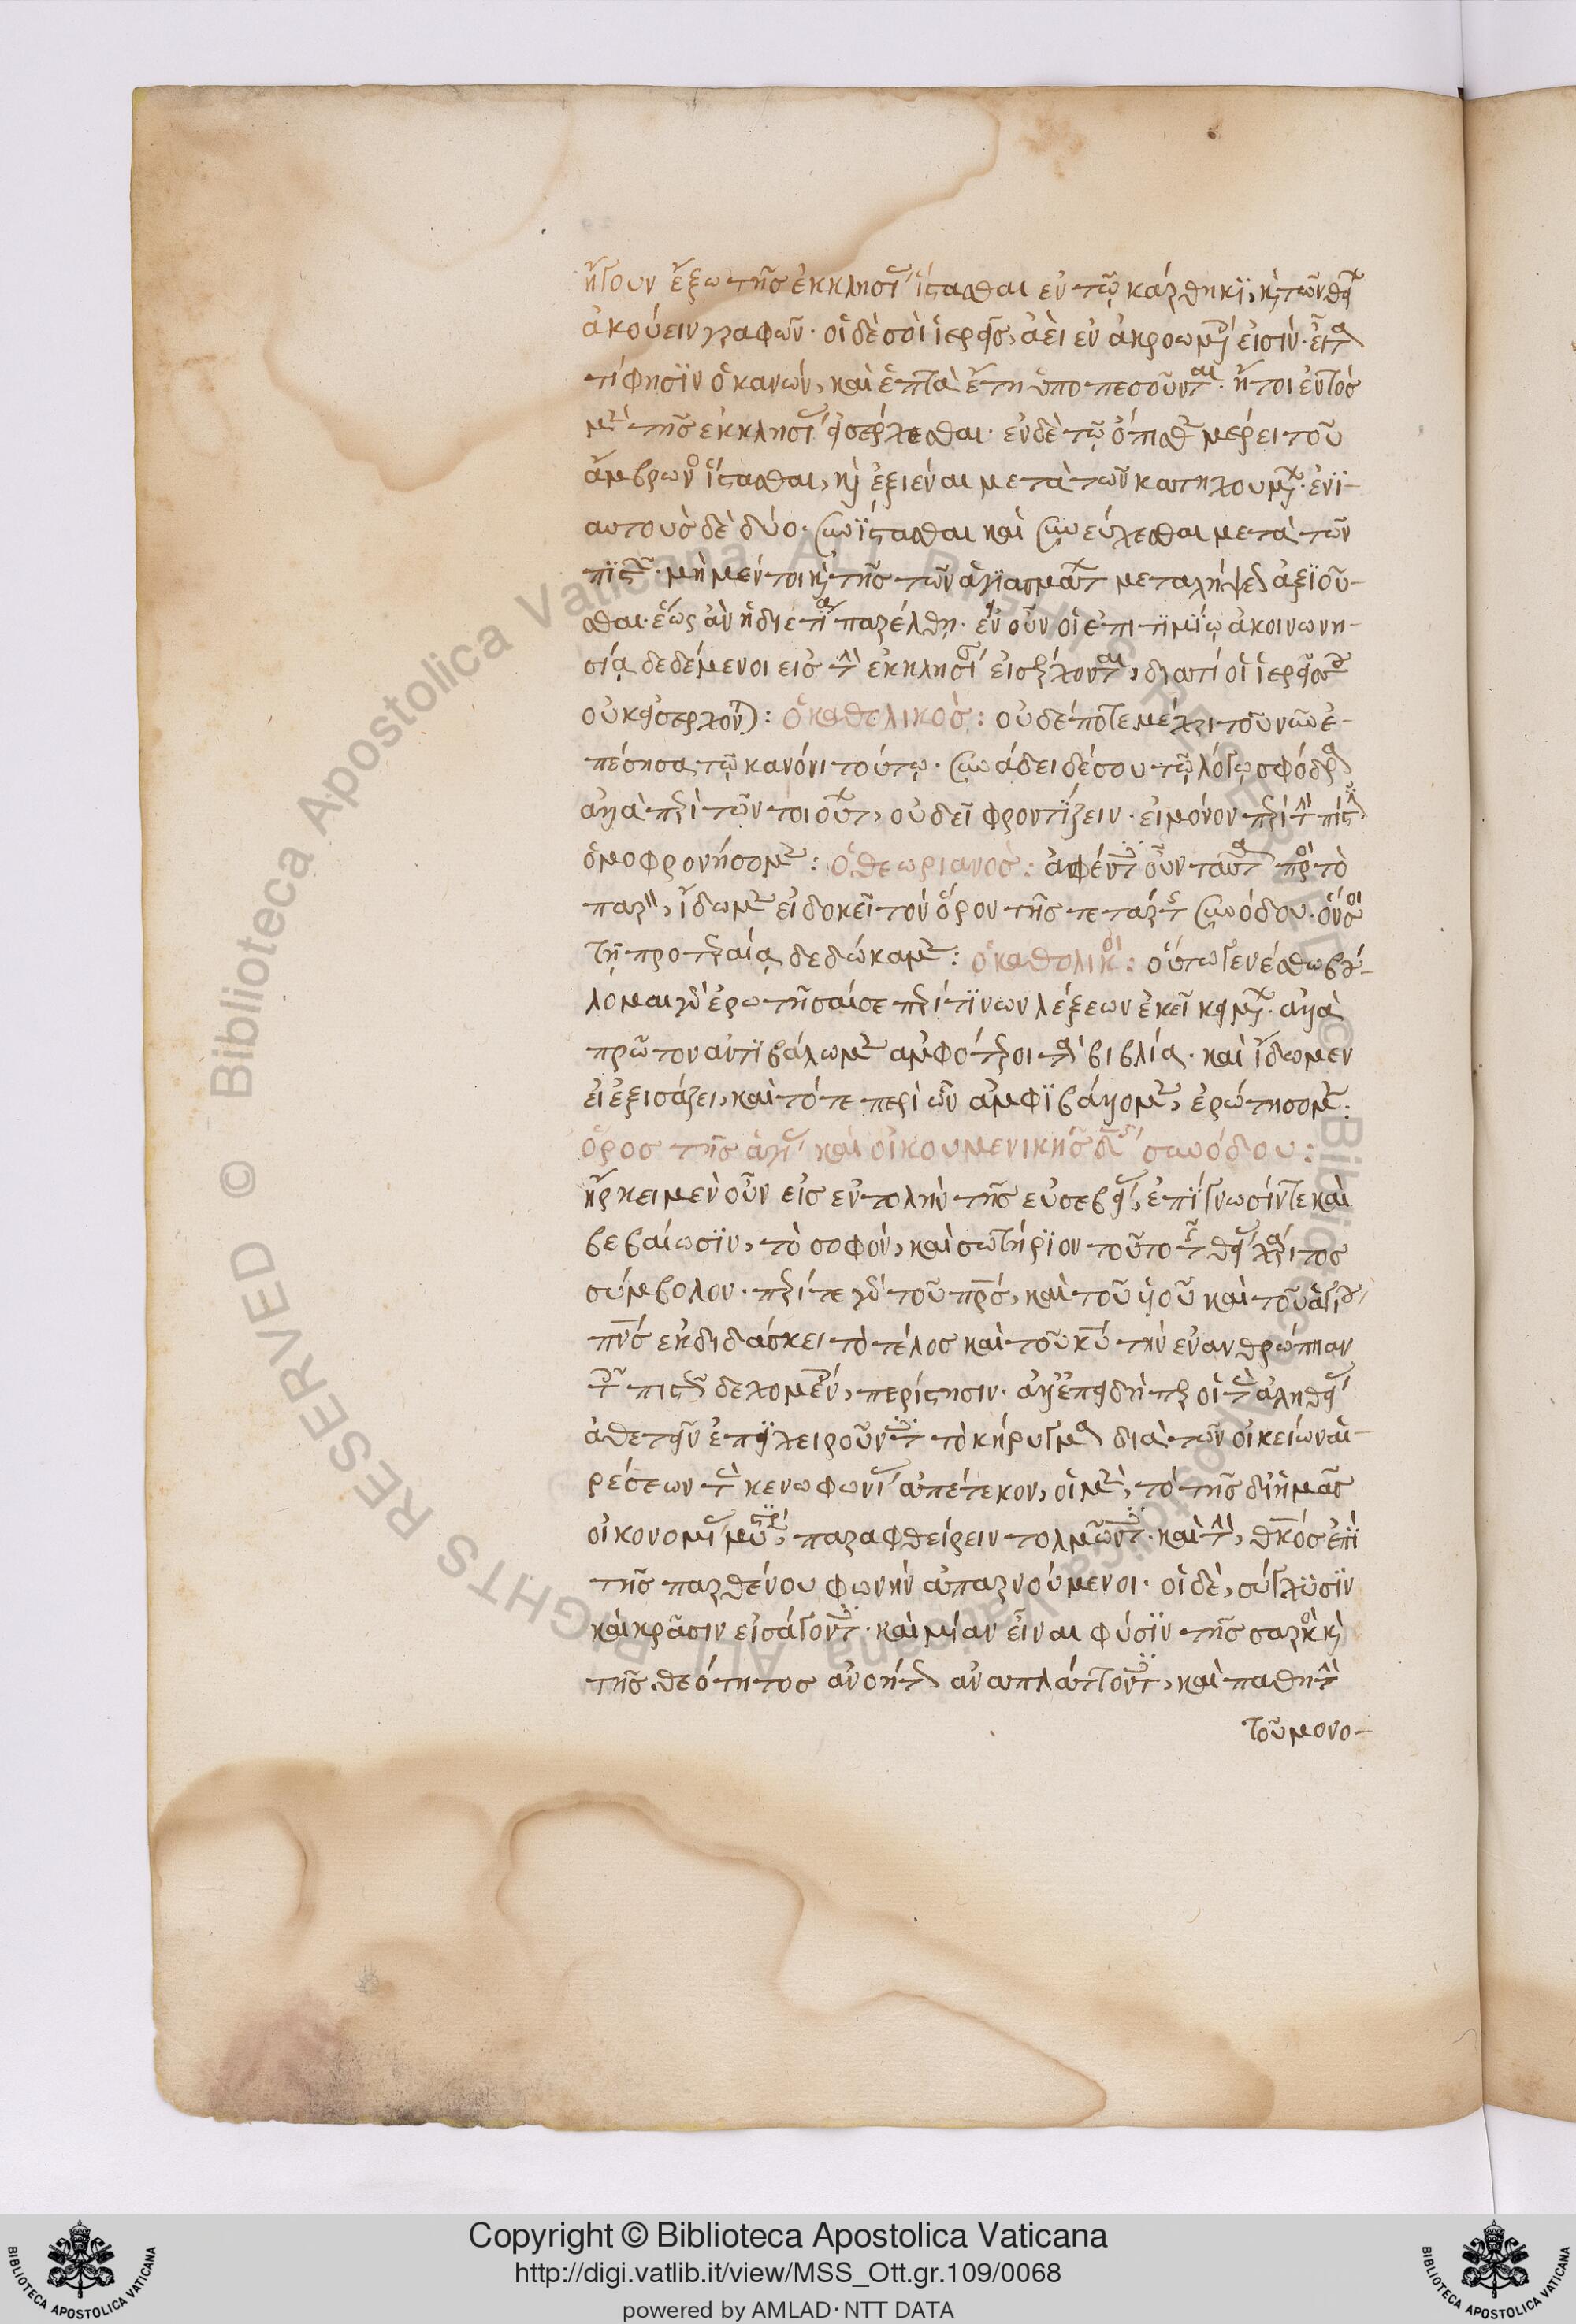 ἤγουν ἔξω τῆς ἐκκλησίας ἵστασθαι ἐν τῷ νάρθηκι, καὶ τῶν θείων
ἀκούειν γραφῶν· οἱ δὲ σοὶ ἱερεῖς, ἀεὶ ἐν ἀκροωμένοις εἰσίν· εἶτα
τί φησὶν ὁ κανών, καὶ ἑπτὰ ἔτη ὑποπεσοῦνται· ἤτοι ἐντὸς
μὲν τῆς ἐκκλησίας εἰσέρχεσθαι· ἐν δὲ τῷ ὄπισθεν μέρει τοῦ
ἄμβωνος ἵστασθαι, καὶ ἐξιέναι μετὰ τῶν κατηχουμένων· ἐνι-
αυτοὺς δὲ δύο· συνίστασθαι καὶ συνεύχεσθαι μετὰ τῶν
πιστῶν· μὴ μέντοι καὶ τῆς τῶν ἁγιασμάτων μεταλήψεως ἀξιοῦ-
σθαι· ἕως ἂν ἡ διετία παρέλθῃ· εἰ οὖν οἱ ἐπιτιμίῳ ἀκοινωνη-
σίας δεδεμένοι εἰς τὴν ἐκκλησίαν εἰσέρχονται, διατί οἱ ἱερεῖς σου
οὐκ εἰσέρχονται: ὁ καθολικός: οὐδέποτε μέχρι τοῦ νῦν ἐ-
πέστησα τῷ κανόνι τούτῳ· συνάδει δέ σου τῷ λόγῳ σφόδρα
ἀλλὰ περὶ τῶν τοιούτων, οὐ δεῖ φροντίζειν· εἰ μόνον περὶ τὴν πίστιν
ὁμοφρονήσομεν: ὁ θεωριανός: ἀφέντες οὖν ταῦτα πρὸς τὸ
παρὸν, ἴδωμεν εἰ δοκεῖ τὸν ὅρον τῆς τετάρτης συνόδου· ὃν σοι
τῇ προτεραίᾳ δεδώκαμεν: ὁ καθολικός: οὕτω γενέσθω βού-
λομαι γὰρ ἐρωτῆσαί σε περί τινων λέξεων ἐκεῖ κειμένων· ἀλλὰ
πρῶτον ἀντιβάλωμεν ἀμφότεροι τὰ βιβλία· καὶ ἴδωμεν
εἰ ἐξισάζει, καὶ τότε περὶ ὧν ἀμφιβάλλομεν, ἐρώτησομεν:
ὅρος τῆς ἁγίας καὶ οἰκουμενικῆς δης συνόδου:
ἤρκει μὲν οὖν εἰς ἐντολὴν τῆς εὐσεβείας, ἐπίγνωσίν τε καὶ
βεβαίωσιν, τὸ σοφὸν, καὶ σωτήριον τοῦτο τῆς θείας χάριτος
σύμβολον· περί τε γὰρ τοῦ πρς, καὶ τοῦ υἱοῦ καὶ τοῦ ἁγίου
πνς ἐκδιδάσκει τὸ τέλος καὶ τοῦ κυ τὴν ἐνανθρώπησιν
τοῖς πιστῶς δεχομένοις, περίστησιν· ἀλλ' ἐπειδήπερ οἱ τῆς ἀληθείας
ἀθετεῖν ἐπιχειροῦντες τὸ κήρυγμα διὰ τῶν οἰκείων αἱ-
ρέσεων τὰς κενοφωνίας ἀπέτεκον, οἱ μὲν, τὸ τῆς δι' ἡμᾶς
οἰκονομίας μυστήριον, παραφθείρειν τολμῶντες· καὶ τὴν, θκος ἐπὶ
τῆς παρθένου φωνὴν ἀπαρνούμενοι· οἱ δὲ, σύγχυσιν
καὶ κρᾶσιν εἰσάγοντες· καὶ μίαν εἶναι φύσιν τῆς σαρκὸς καὶ
τῆς θεότητος ἀνοήτως ἀναπλάττοντες, καὶ παθητὴν
τοῦ μονο-
Copyright © Biblioteca Apostolica Vaticana
http://digi.vatlib.it/view/MSS_Ott.gr.109/0068
powered by AMLAD·NTT DATA
BIBLIOTECA APOSTOLICA VATICANA
BIBLIOTECA APOSTOLICA VATICANA